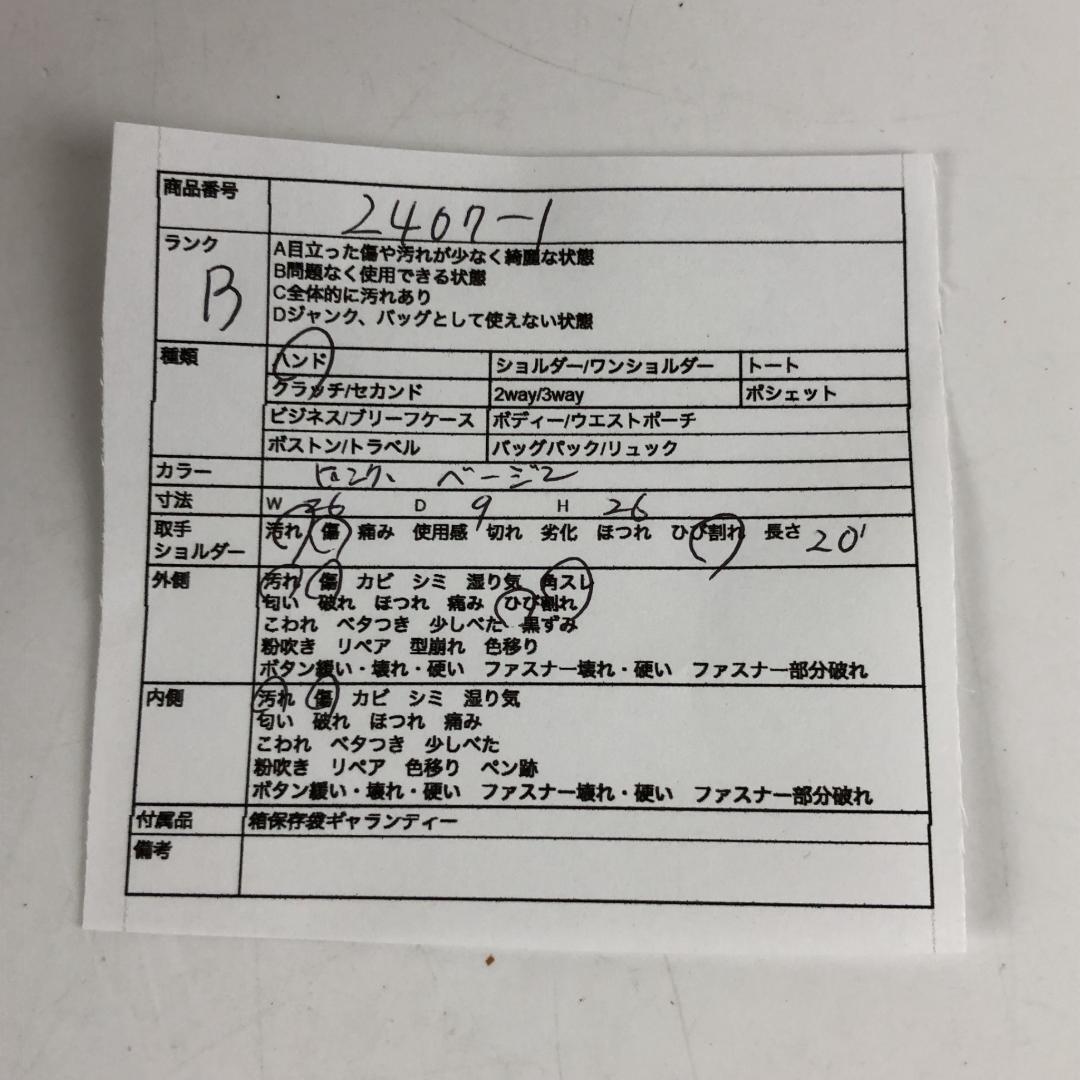 商品番号 2407-1
ランク B
A目立った傷や汚れが少なく綺麗な状態
B問題なく使用できる状態
C全体的に汚れあり
Dジャンク、バッグとして使えない状態
種類 ハンド ショルダー/ワンショルダー トート
クラッチ/セカンド 2way/3way ポシェット
ビジネス/ブリーフケース ボディー/ウエストポーチ
ボストン/トラベル バッグパック/リュック
カラー ピンク、ベージュ
寸法 W 36 D 9 H 26
取手 汚れ 傷 痛み 使用感 切れ 劣化 ほつれ ひび割れ 長さ 20
ショルダー
外側 汚れ 傷 カビ シミ 湿り気 角スレ
匂い 破れ ほつれ 痛み ひび割れ
こわれ ベタつき 少しべた 黒ずみ
粉吹き リペア 型崩れ 色移り
ボタン緩い・壊れ・硬い ファスナー壊れ・硬い ファスナー部分破れ
内側 汚れ 傷 カビ シミ 湿り気
匂い 破れ ほつれ 痛み
こわれ ベタつき 少しべた
粉吹き リペア 色移り ペン跡
ボタン緩い・壊れ・硬い ファスナー壊れ・硬い ファスナー部分破れ
付属品 箱保存袋ギャランティー
備考